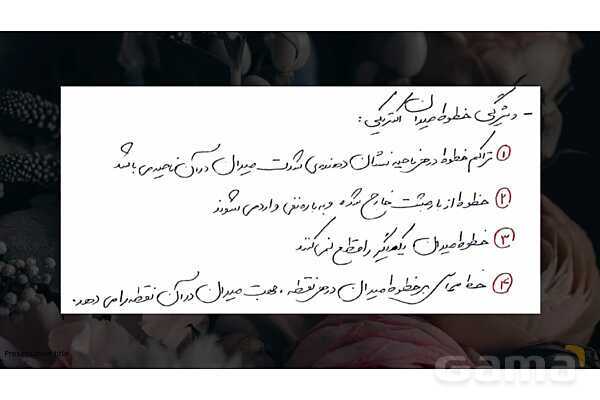 - ویژگی خطوط میدان الکتریکی:
① تراکم خطوط در هر ناحیه نشان دهنده‌ی شدت میدان در آن ناحیه می باشد
② خطوط از بار مثبت خارج شده و به بار منفی وارد می شوند
③ خطوط میدان یکدیگر را قطع نمی کنند
④ خط مماس بر خطوط میدان در هر نقطه، جهت میدان در آن نقطه را می دهد.
Presentation title
Gama